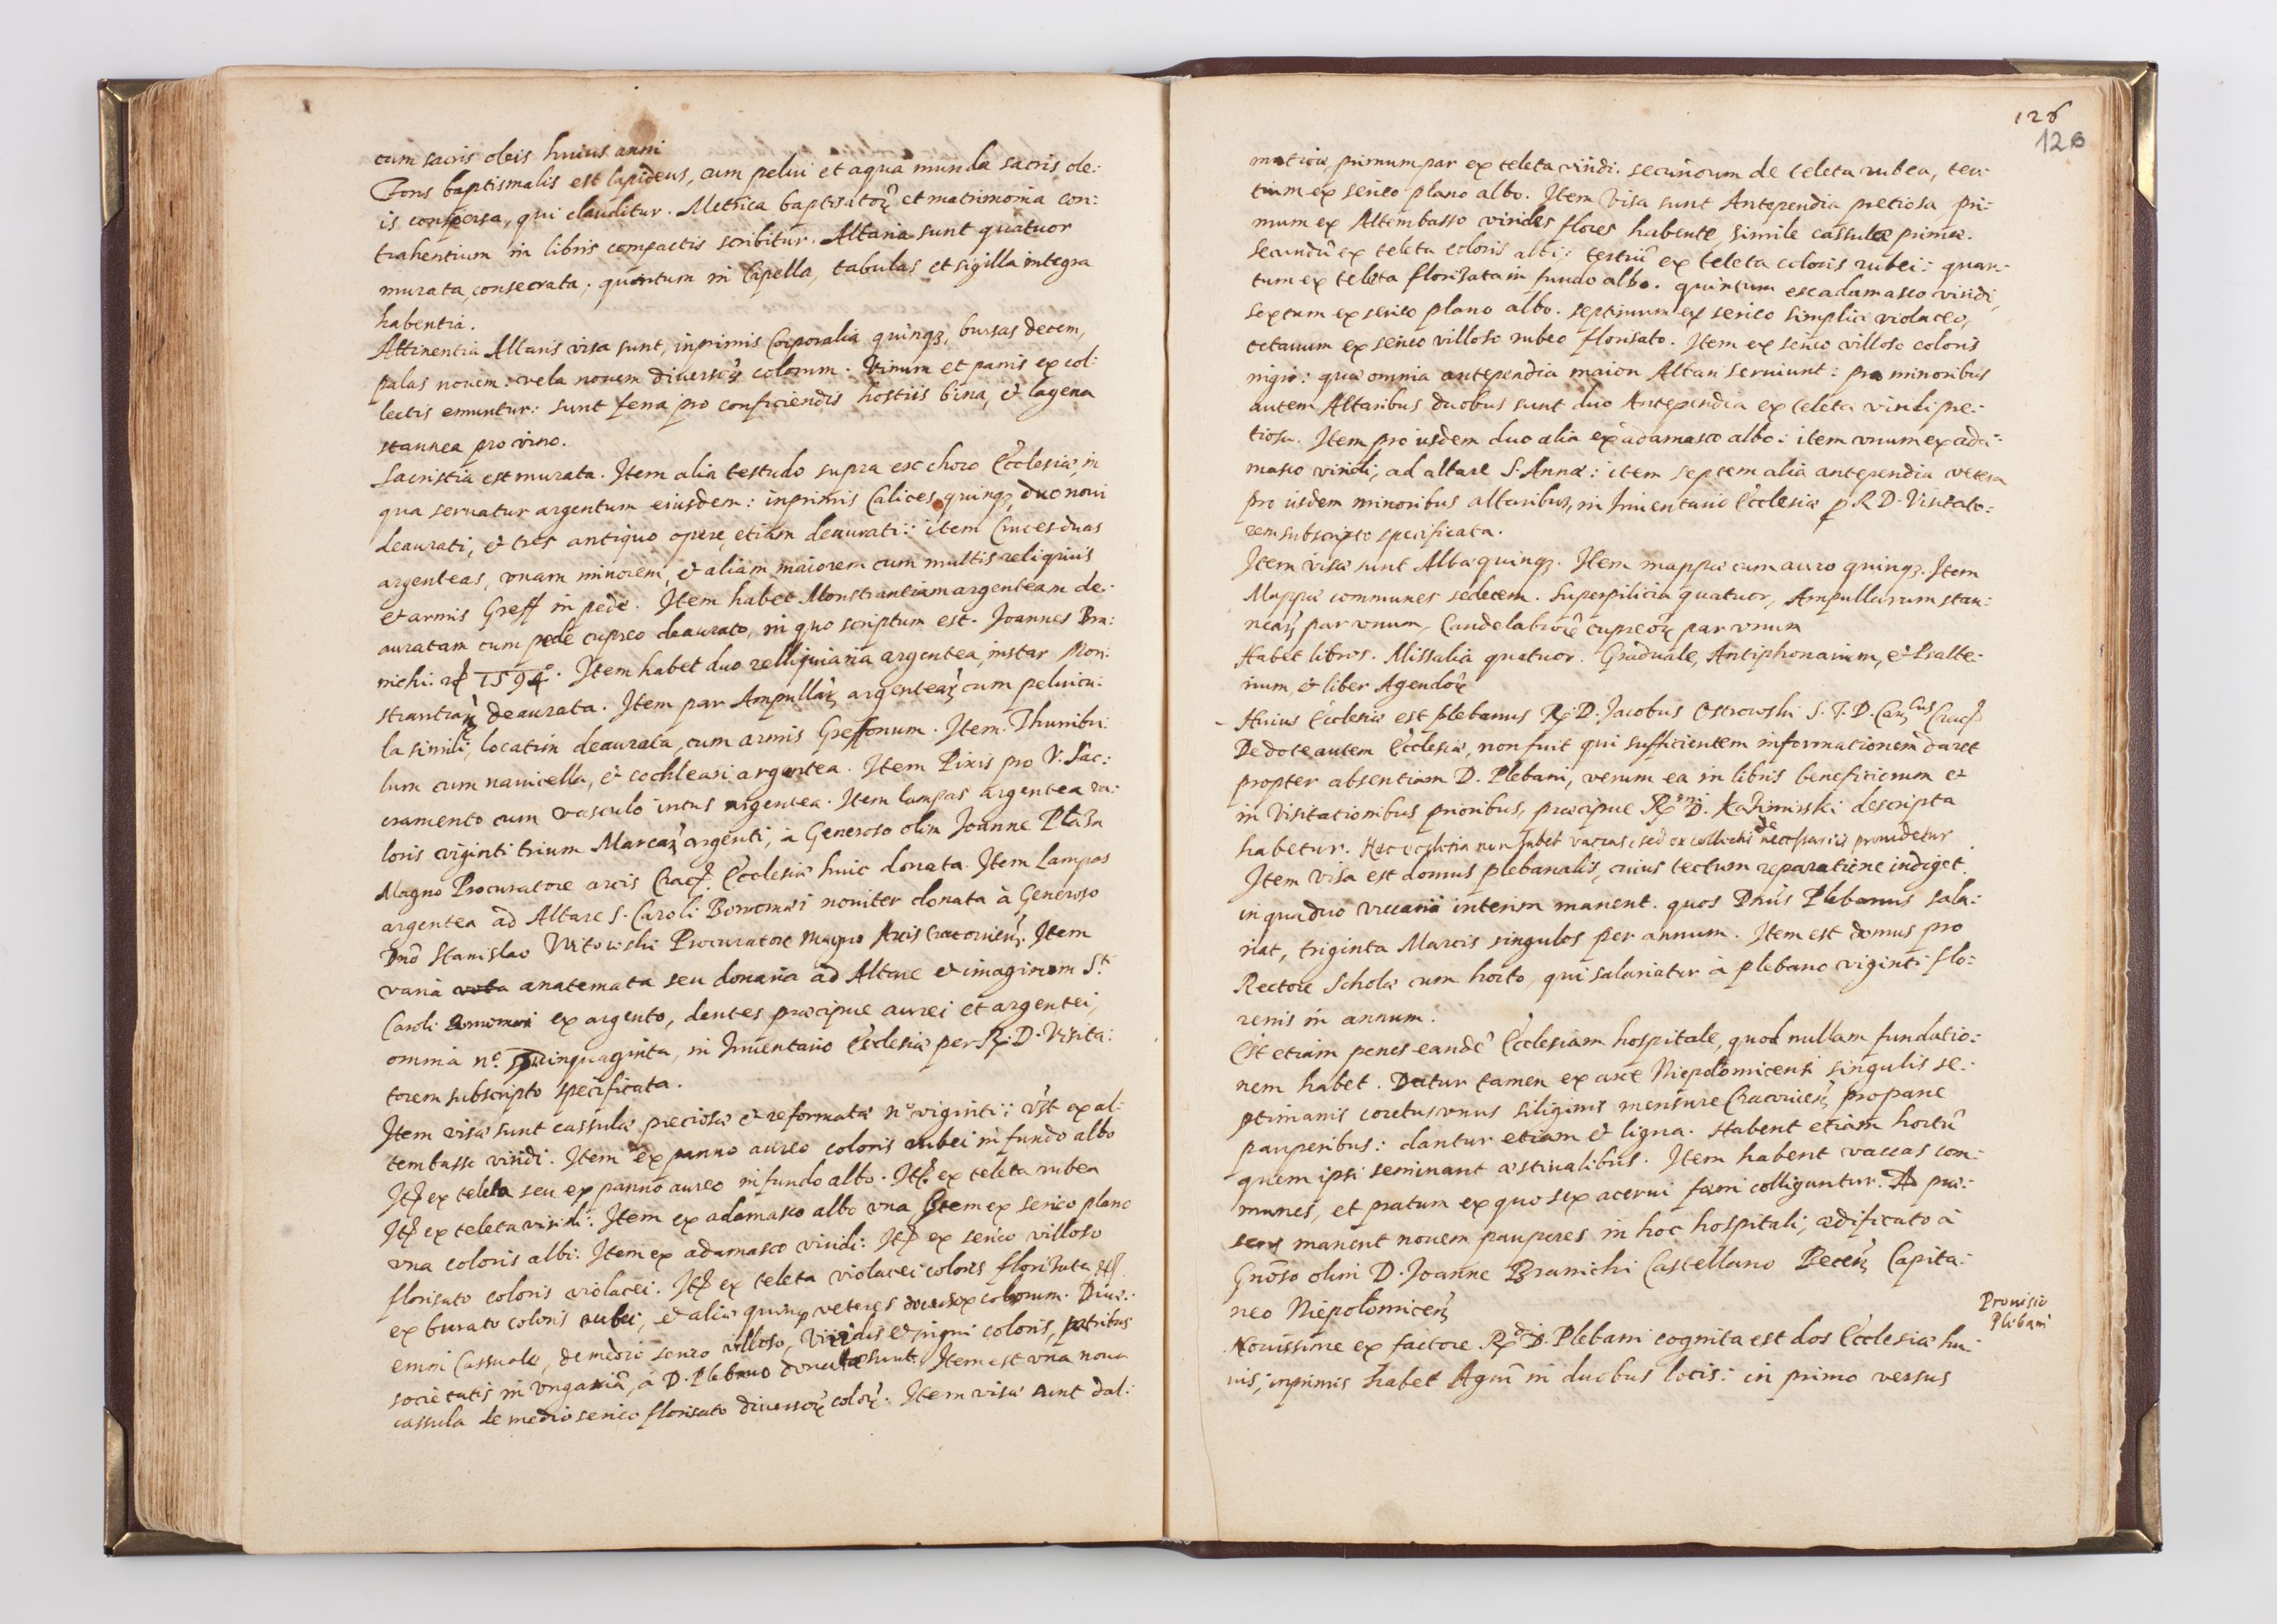 cum sacris oleis huius anni
Fons baptismalis est lapideus, cum pelui et aqua munda sacris ole:
is conspersa, qui clauditur. Metrica baptisatoȓ et matrimonia con:
trahentium in libris compactis scribitur. Altaria sunt quatuor
murata, consecrata; quintum in Capella, tabulas et sigilla integra
habentia.
Attinentia Altaris visa sunt, inprimis Corporalia quinqȝ, bursas decem,
palas nouem: vela nouem diuersoȓ colorum. Vinum et panis ex col:
lectis emuntur: sunt ferra pro conficiendis hostiis bina, & lagena
stannea pro vino.
Sacristia est murata. Item alia testudo supra ex choro Ecclesiæ, in
qua seruatur argentum eiusdem: inprimis Calices quinqȝ, duo noui
deaurati, & tres antiquo opere, etiam deaurati: item Cruces duas
argenteas, vnam minorem, & aliam maiorem cum multis reliquiis
& armis Greff in pede. Item habet Monstrantiam argenteam de:
auratam cum pede cupreo deaurato, in quo scriptum est. Joannes Bra:
nichi: 1594. Item habet duo relliquiaria argentea, instar Mon:
strantiaȓ deaurata. Item par Ampullaȓ argenteaȓ cum peluicu:
la simili, locatim deaurata, cum armis Greffonum. Item Thuribu:
lum cum nauicella, & cochleari argentea. Item Pixis pro V. Sac:
cramento cum vasculo intus argentea. Item lampas argentea va:
loris viginti trium Marcaȓ argenti, à Generoso olim Joanne Plaza
Magno Procuratore arcis Crac. Ecclesiæ huic donata. Item Lampas
argentea ad Altare S. Caroli Boromæi nouiter donata à Generoso
Dnō Stanislao Witowski Procuratore Magno Arcis Cracouień. Item
varia anatemata seu donaria ad Altare & imaginem S.ti
Caroli Boromæi ex argento, dentes præcipue aurei et argentei,
omnia nº. quinquaginta, in Inuentario Ecclesiæ per R. D. Visita:
torem subscripto specificata.
Item visæ sunt cassulæ preciosæ & reformatæ nº viginti: vꝫt ex al:
tembasso viridi. Item ex panno aureo coloris rubei in fundo albo
Itē ex teleta seu ex panno aureo in fundo albo. Itē ex teleta rubea
Itē ex teleta viridi. Item ex adamasco albo vna Item ex serico plano
vna coloris albi. Item ex adamasco viridi: Itē ex serico villoso
florisato coloris violacei. Itē ex teleta violacei coloris florisata Itē
ex burato coloris rubei, & aliæ quinqȝ veteres diuersor colorum. Duæ:
enim Cassulæ, de medio serico villoso, viridis & nigri coloris, patribus
societatis in Vngariā, à D. Plebano donatæ sunt, Item est vna noua
cassula de medio serico florisato diuersoȓ coloȓ. Item visæ sunt dal:
126
126
maticæ, primum par ex teleta viridi. secundum de teleta rubea, ter:
tium ex serico plano albo. Item Visa sunt Antependia pretiosa, pri:
mum ex Altembasso virides flores habente, simile cassulæ primæ.
Secundū ex teleta coloris albi: tertiū ex teleta coloris rubei: quar:
tum ex teleta florisata in fundo albo. quintum ex adamasco viridi,
sextum ex serico plano albo. septimum ex serico simplici violaceo,
octauum ex serico villoso rubeo florisato. Item ex serico villoso coloris
nigri: quæ omnia antependia maiori Altari seruiunt: pro minoribus
autem Altaribus duobus sunt duo Antependia ex teleta viridi pre:
tiosa. Item pro iisdem duo alia ex adamasco albo: item vnum ex ada:
masco viridi, ad altare S. Annæ: item septem alia antependia vetera
pro iisdem minoribus altaribus, in Inuentario Ecclesiæ p R D. Visitato:
rem subscripto specificata.
Item visæ sunt Albæ quinqȝ. Item mappæ cum auro quinqȝ. Item
Mappæ communes sedecem. Superpilicia quatuor, Ampullarum stan:
neaȓ par vnum, Candelabroȓ cupreoȓ par vnum
Habet libros. Missalia quatuor. Graduale, Antiphonarium, & Psalte:
rium, & liber Agendoȓ
Huius Ecclesiæ est plebanus R. D. Jacobus Ostrowski S. T. D. Can.cus Crac.
De dote autem Ecclesiæ, non fuit qui sufficientem informationem daret
propter absentiam D. Plebani, verum ea in libris beneficiorum et
in Visitationibus prioribus, præcipue R.mi D. Kazimirski descripta
habetur. Hæc ecclesia non habet vaccas, sed ex collectis de necessariis prouidetur
Item visa est domus plebanalis, cuius tectum reparatione indiget.
in qua duo vicarii interim manent. quos Dnūs Plebanus sala:
riat, triginta Marcis singulos per annum. Item est domus pro
Rectore Scholæ cum horto, qui salariatur à plebano viginti flo:
renis in annum.
Est etiam penes eandē Ecclesiam hospitale, quod nullam fundatio:
nem habet. Datur tamen ex arce Niepolomicensi singulis se:
ptimanis coretus vnus siliginis mensure Cracouień pro pane
pauperibus: dantur etiam & ligna. Habent etiam hortū
quem ipsi seminant æstiualibus. Item habent vaccas com:
munes, et pratum ex quo sex acerui fæni colliguntur. Ad præ:
sens manent nouem pauperes in hoc hospitali, ædificato à
Gnōso olim D. Joanne Branichi Castellano Beceń Capita:
neo Niepołomiceń
Prouisio
Plebani
Nouissime ex factore R.di D. Plebani cognita est dos Ecclesiæ hu:
ius; inprimis habet Agrū in duobus locis: in primo versus